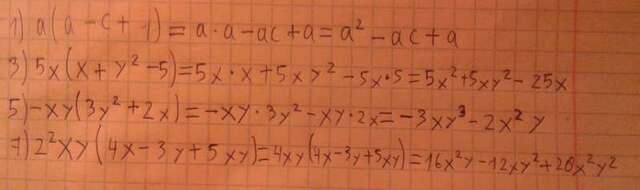 1) a(a-c+1)=a·a-ac+a=a²-ac+a
3) 5x(x+y²-5)=5x·x+5xy²-5x·5=5x²+5xy²-25x
5) -xy(3y²+2x)=-xy·3y²-xy·2x=-3xy³-2x²y
7) 2²xy(4x-3y+5xy)=4xy(4x-3y+5xy)=16x²y-12xy²+20x²y²